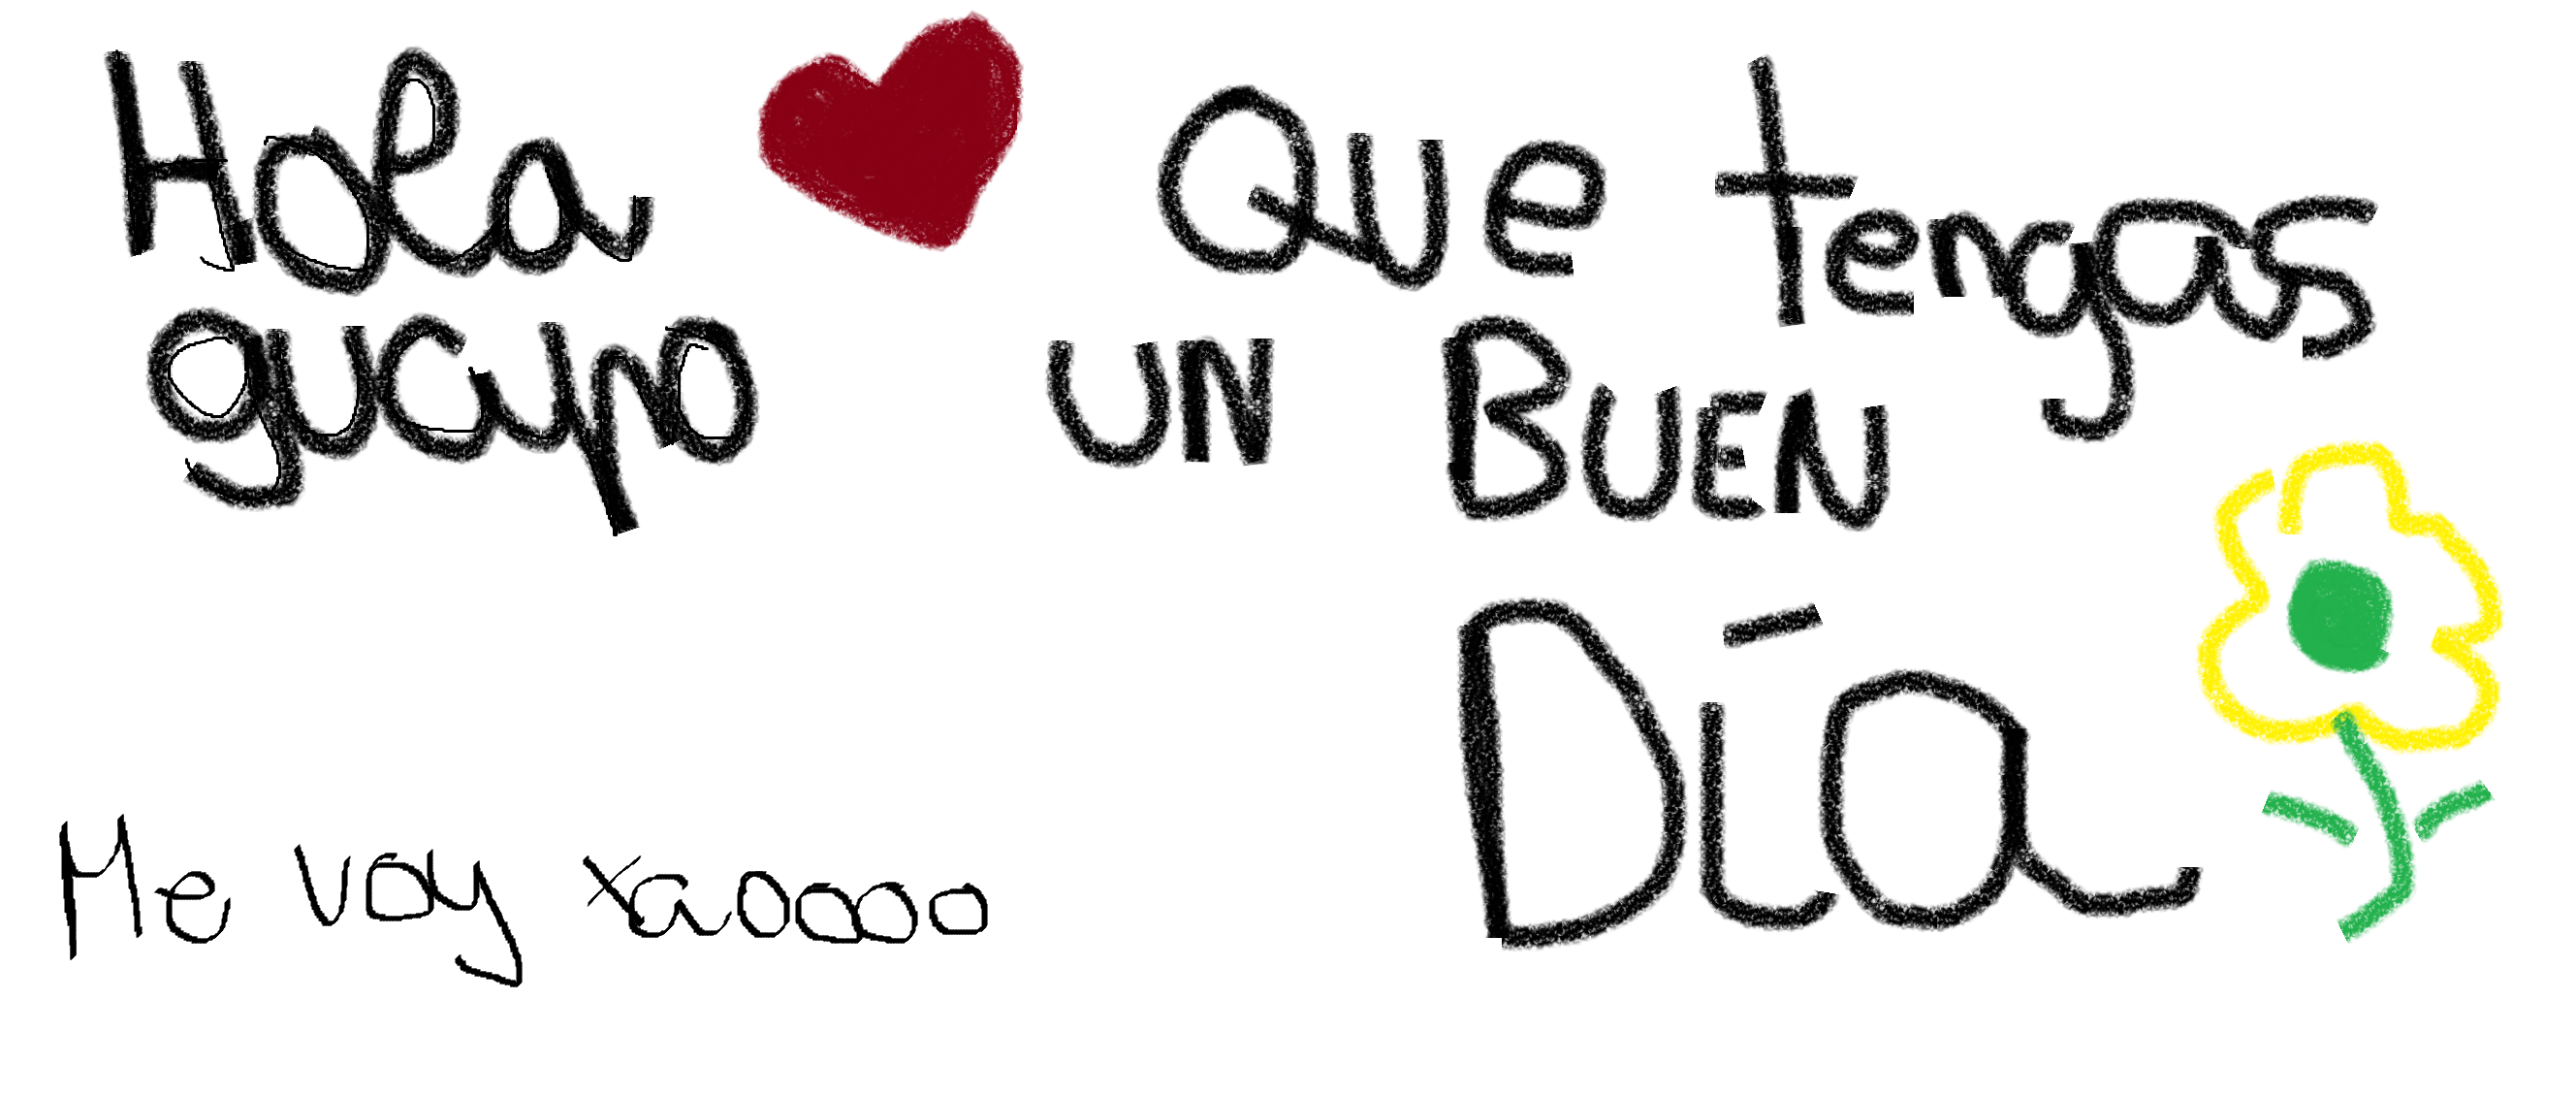 Hola
guapo
Que tengas
UN BUEN
Día
Me voy xaoooo